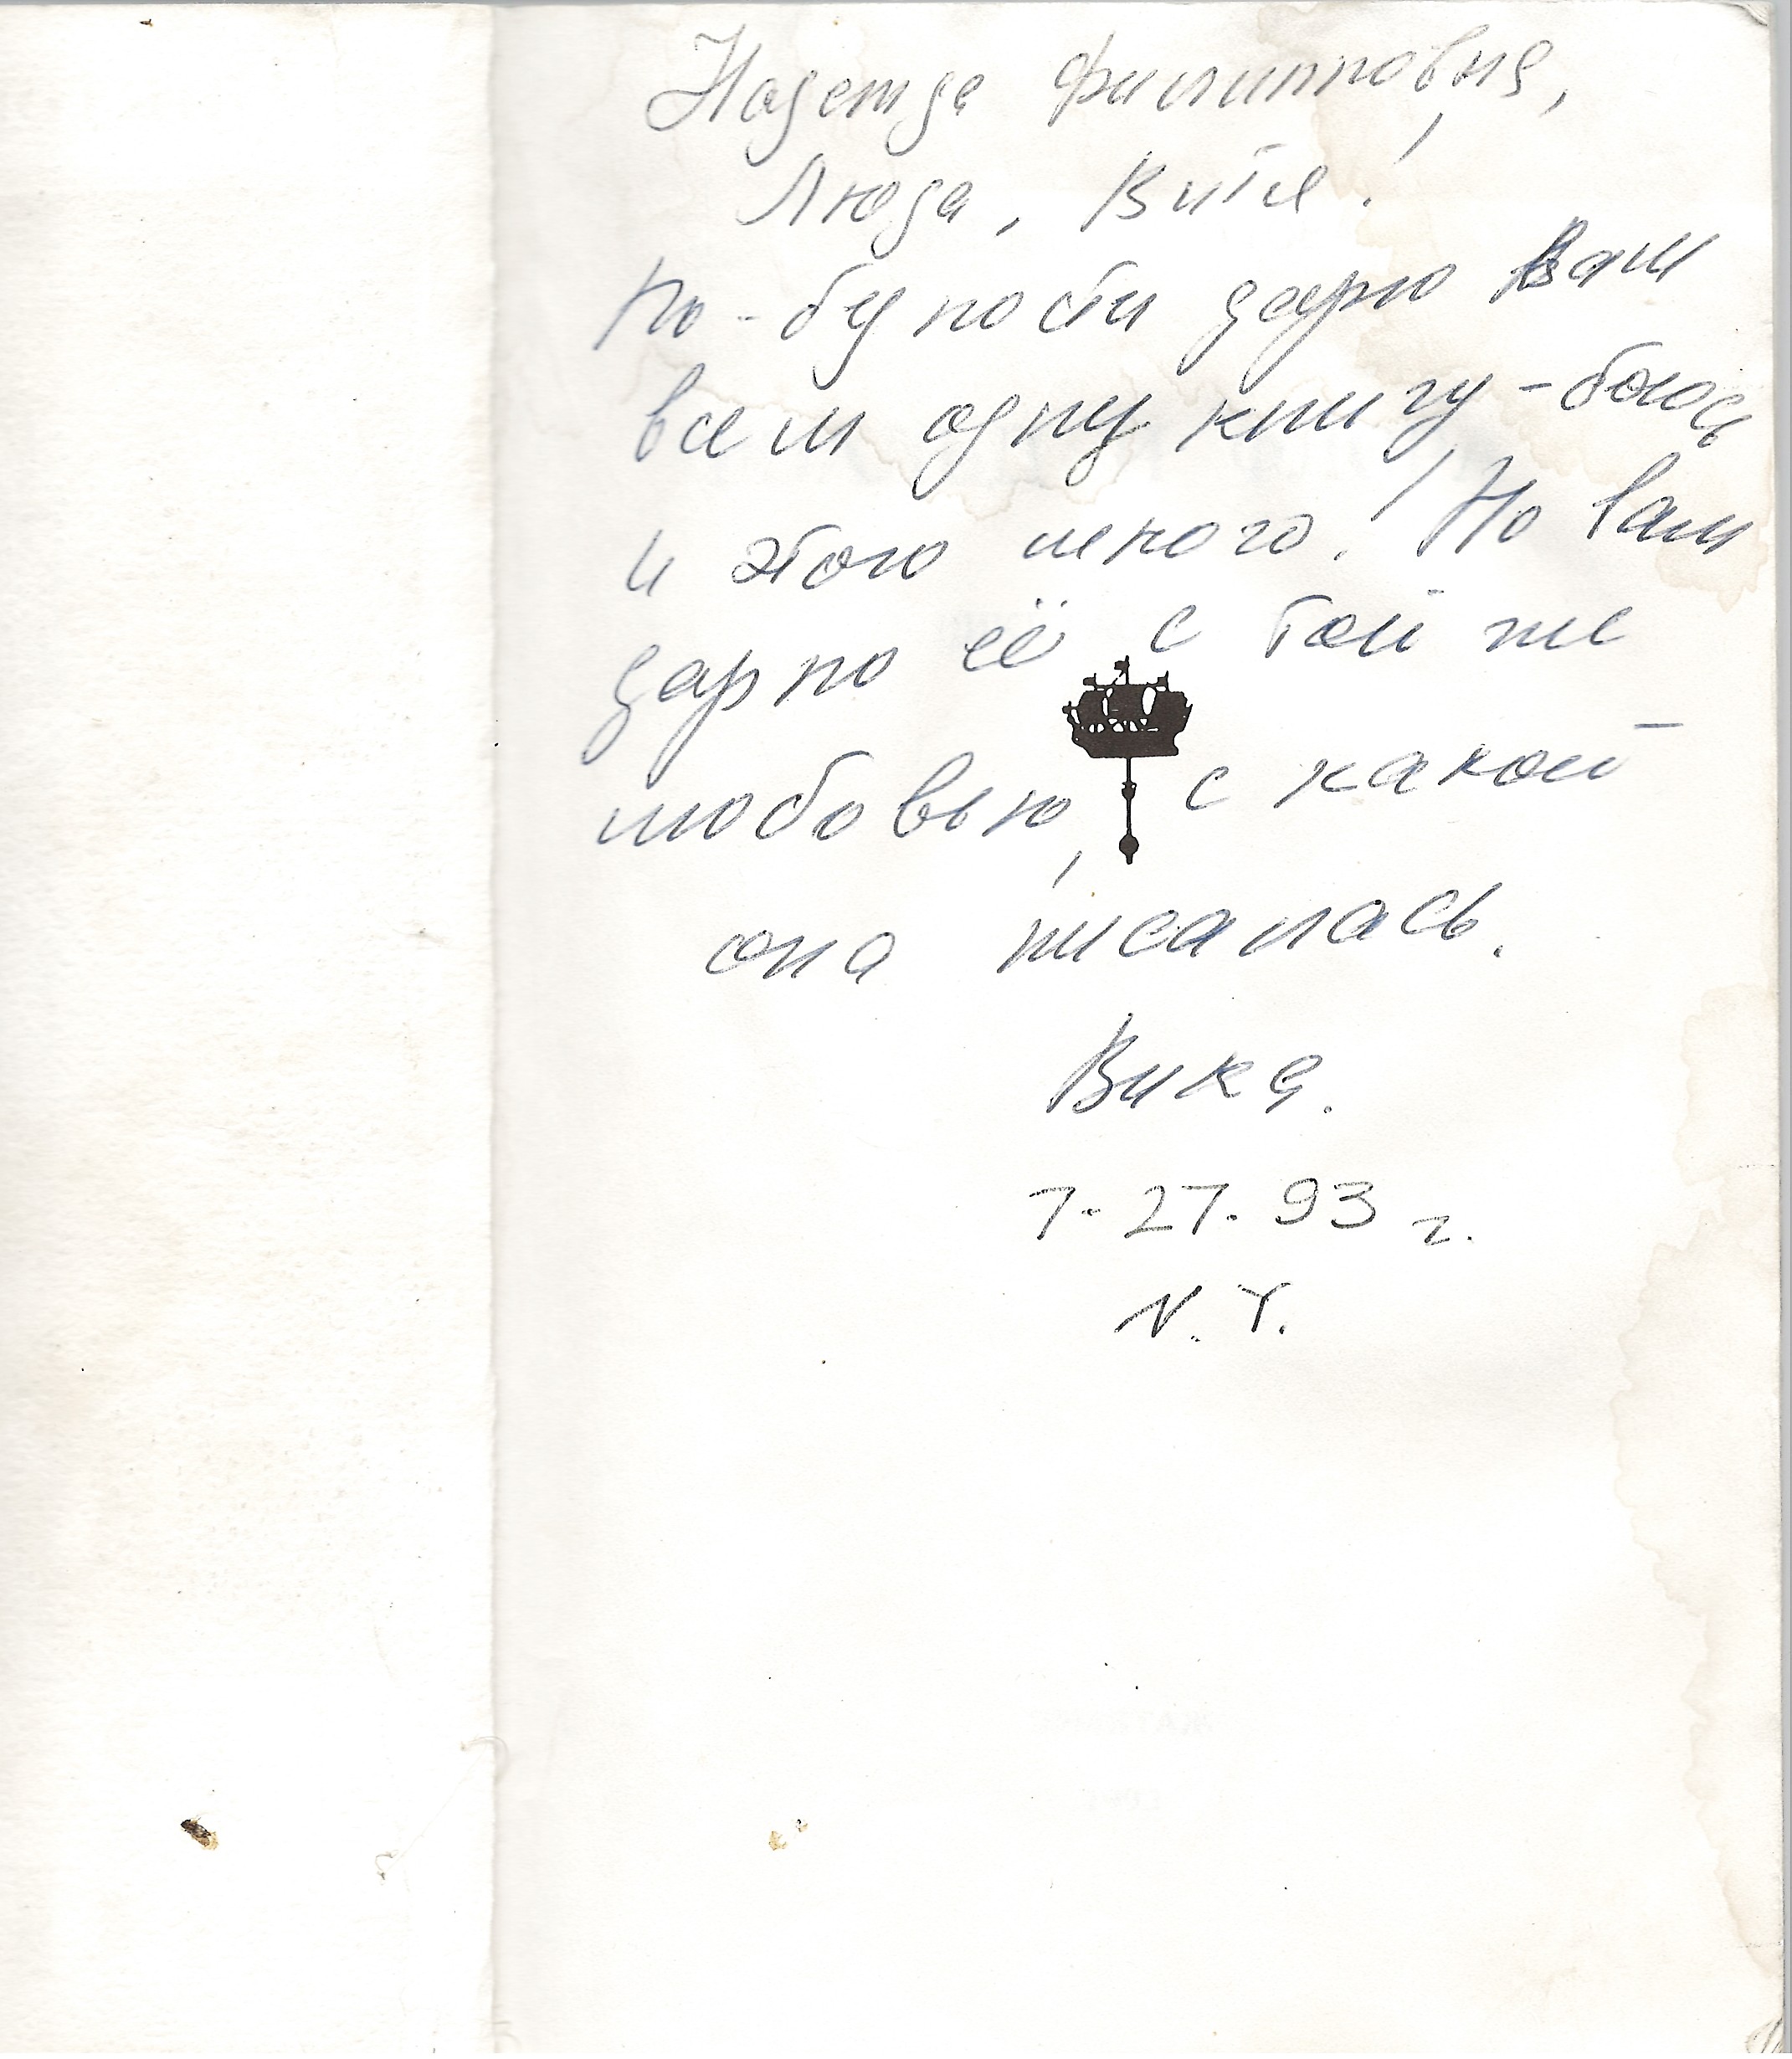 Надежда Филипповна,
Люда, Витя!
По-бедности дарю Вам
всем одну книгу - боюсь
и этого много! Но вам
дарю её с той же
любовью, с какой
она писалась.
Вика.
7.27.93 г.
N.Y.